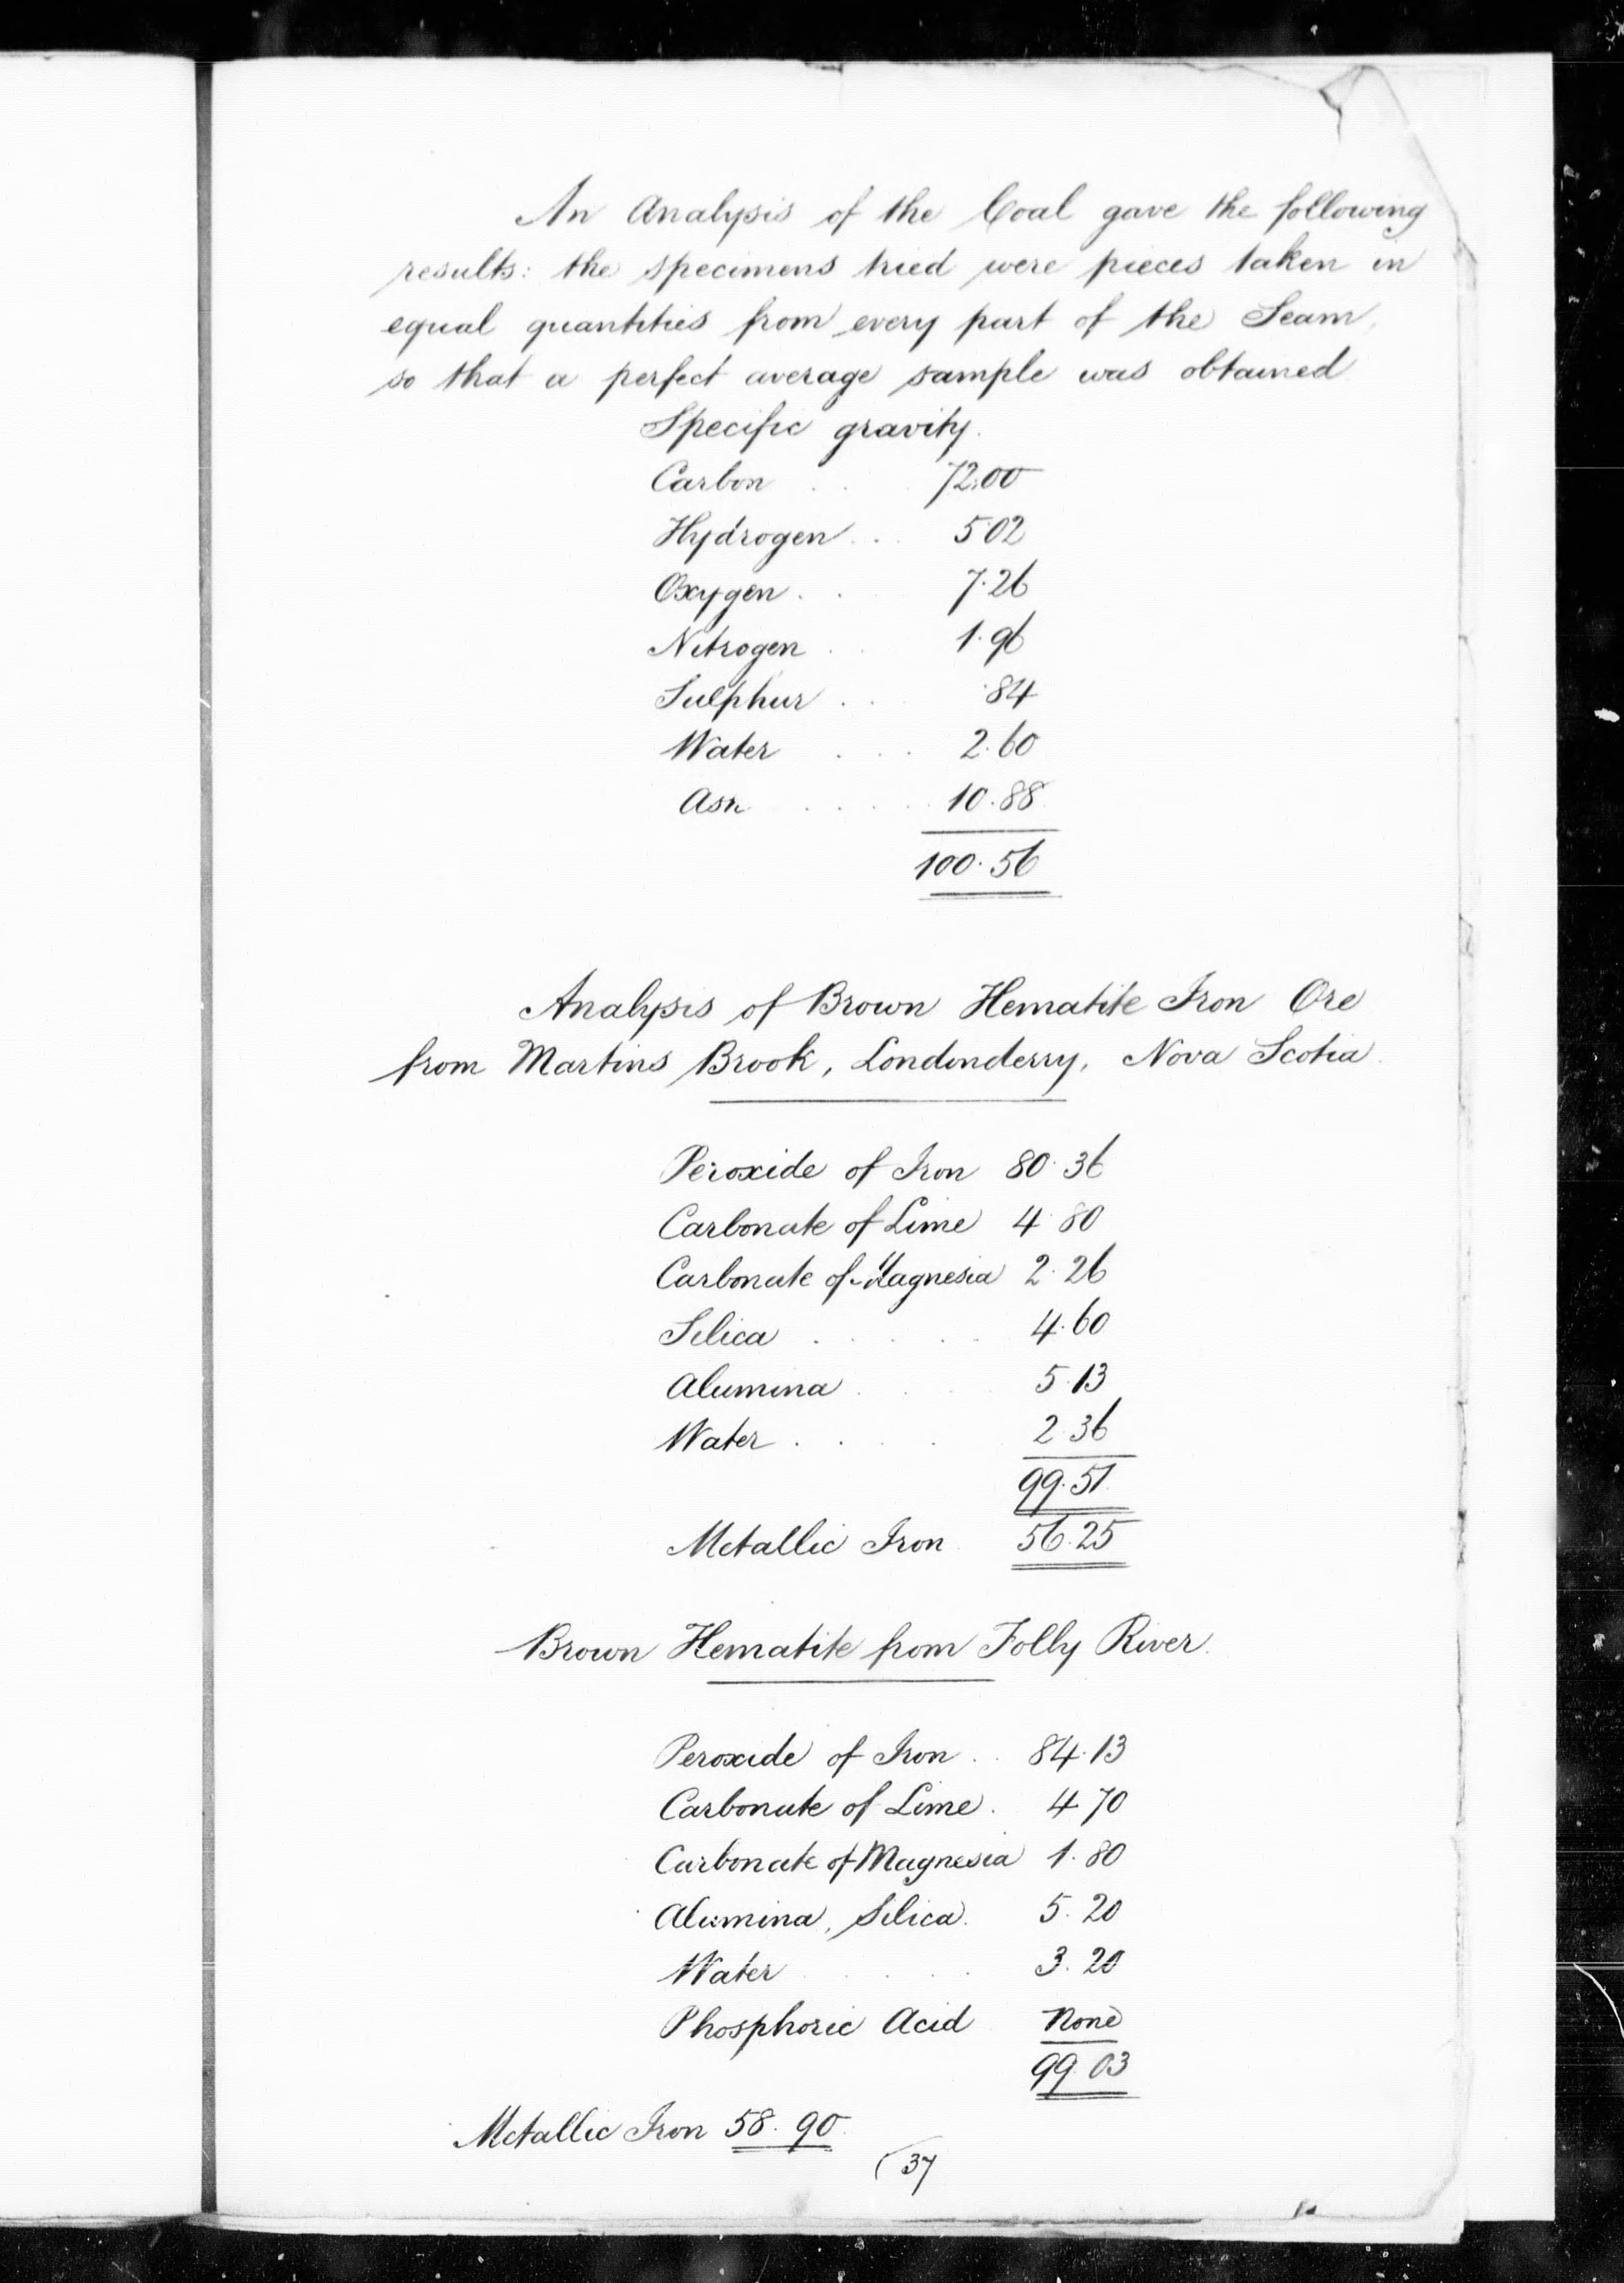 An Analysis of the Coal gave the following
results: the specimens tried were pieces taken in
equal quantities from every part of the Seam,
so that a perfect average sample was obtained
Specific gravity.
Carbon . . 72.00
Hydrogen . . 5.02
Oxygen . . 7.26
Nitrogen . . 1.96
Sulphur . . .84
Water . . . 2.60
Ash . . . . 10.88
100.56
Analysis of Brown Hematite Iron Ore
from Martins Brook, Londonderry, Nova Scotia.
Peroxide of Iron 80.36
Carbonate of Lime 4.80
Carbonate of Magnesia 2.26
Silica . . . . 4.60
Alumina . . . 5.13
Water . . . . 2.36
99.51
Metallic Iron 56.25
Brown Hematite from Folly River.
Peroxide of Iron . . 84.13
Carbonate of Lime . 4.70
Carbonate of Magnesia 1.80
Alumina, Silica. 5.20
Water . . . . 3.20
Phosphoric Acid None
99.03
Metallic Iron 58.90
(37